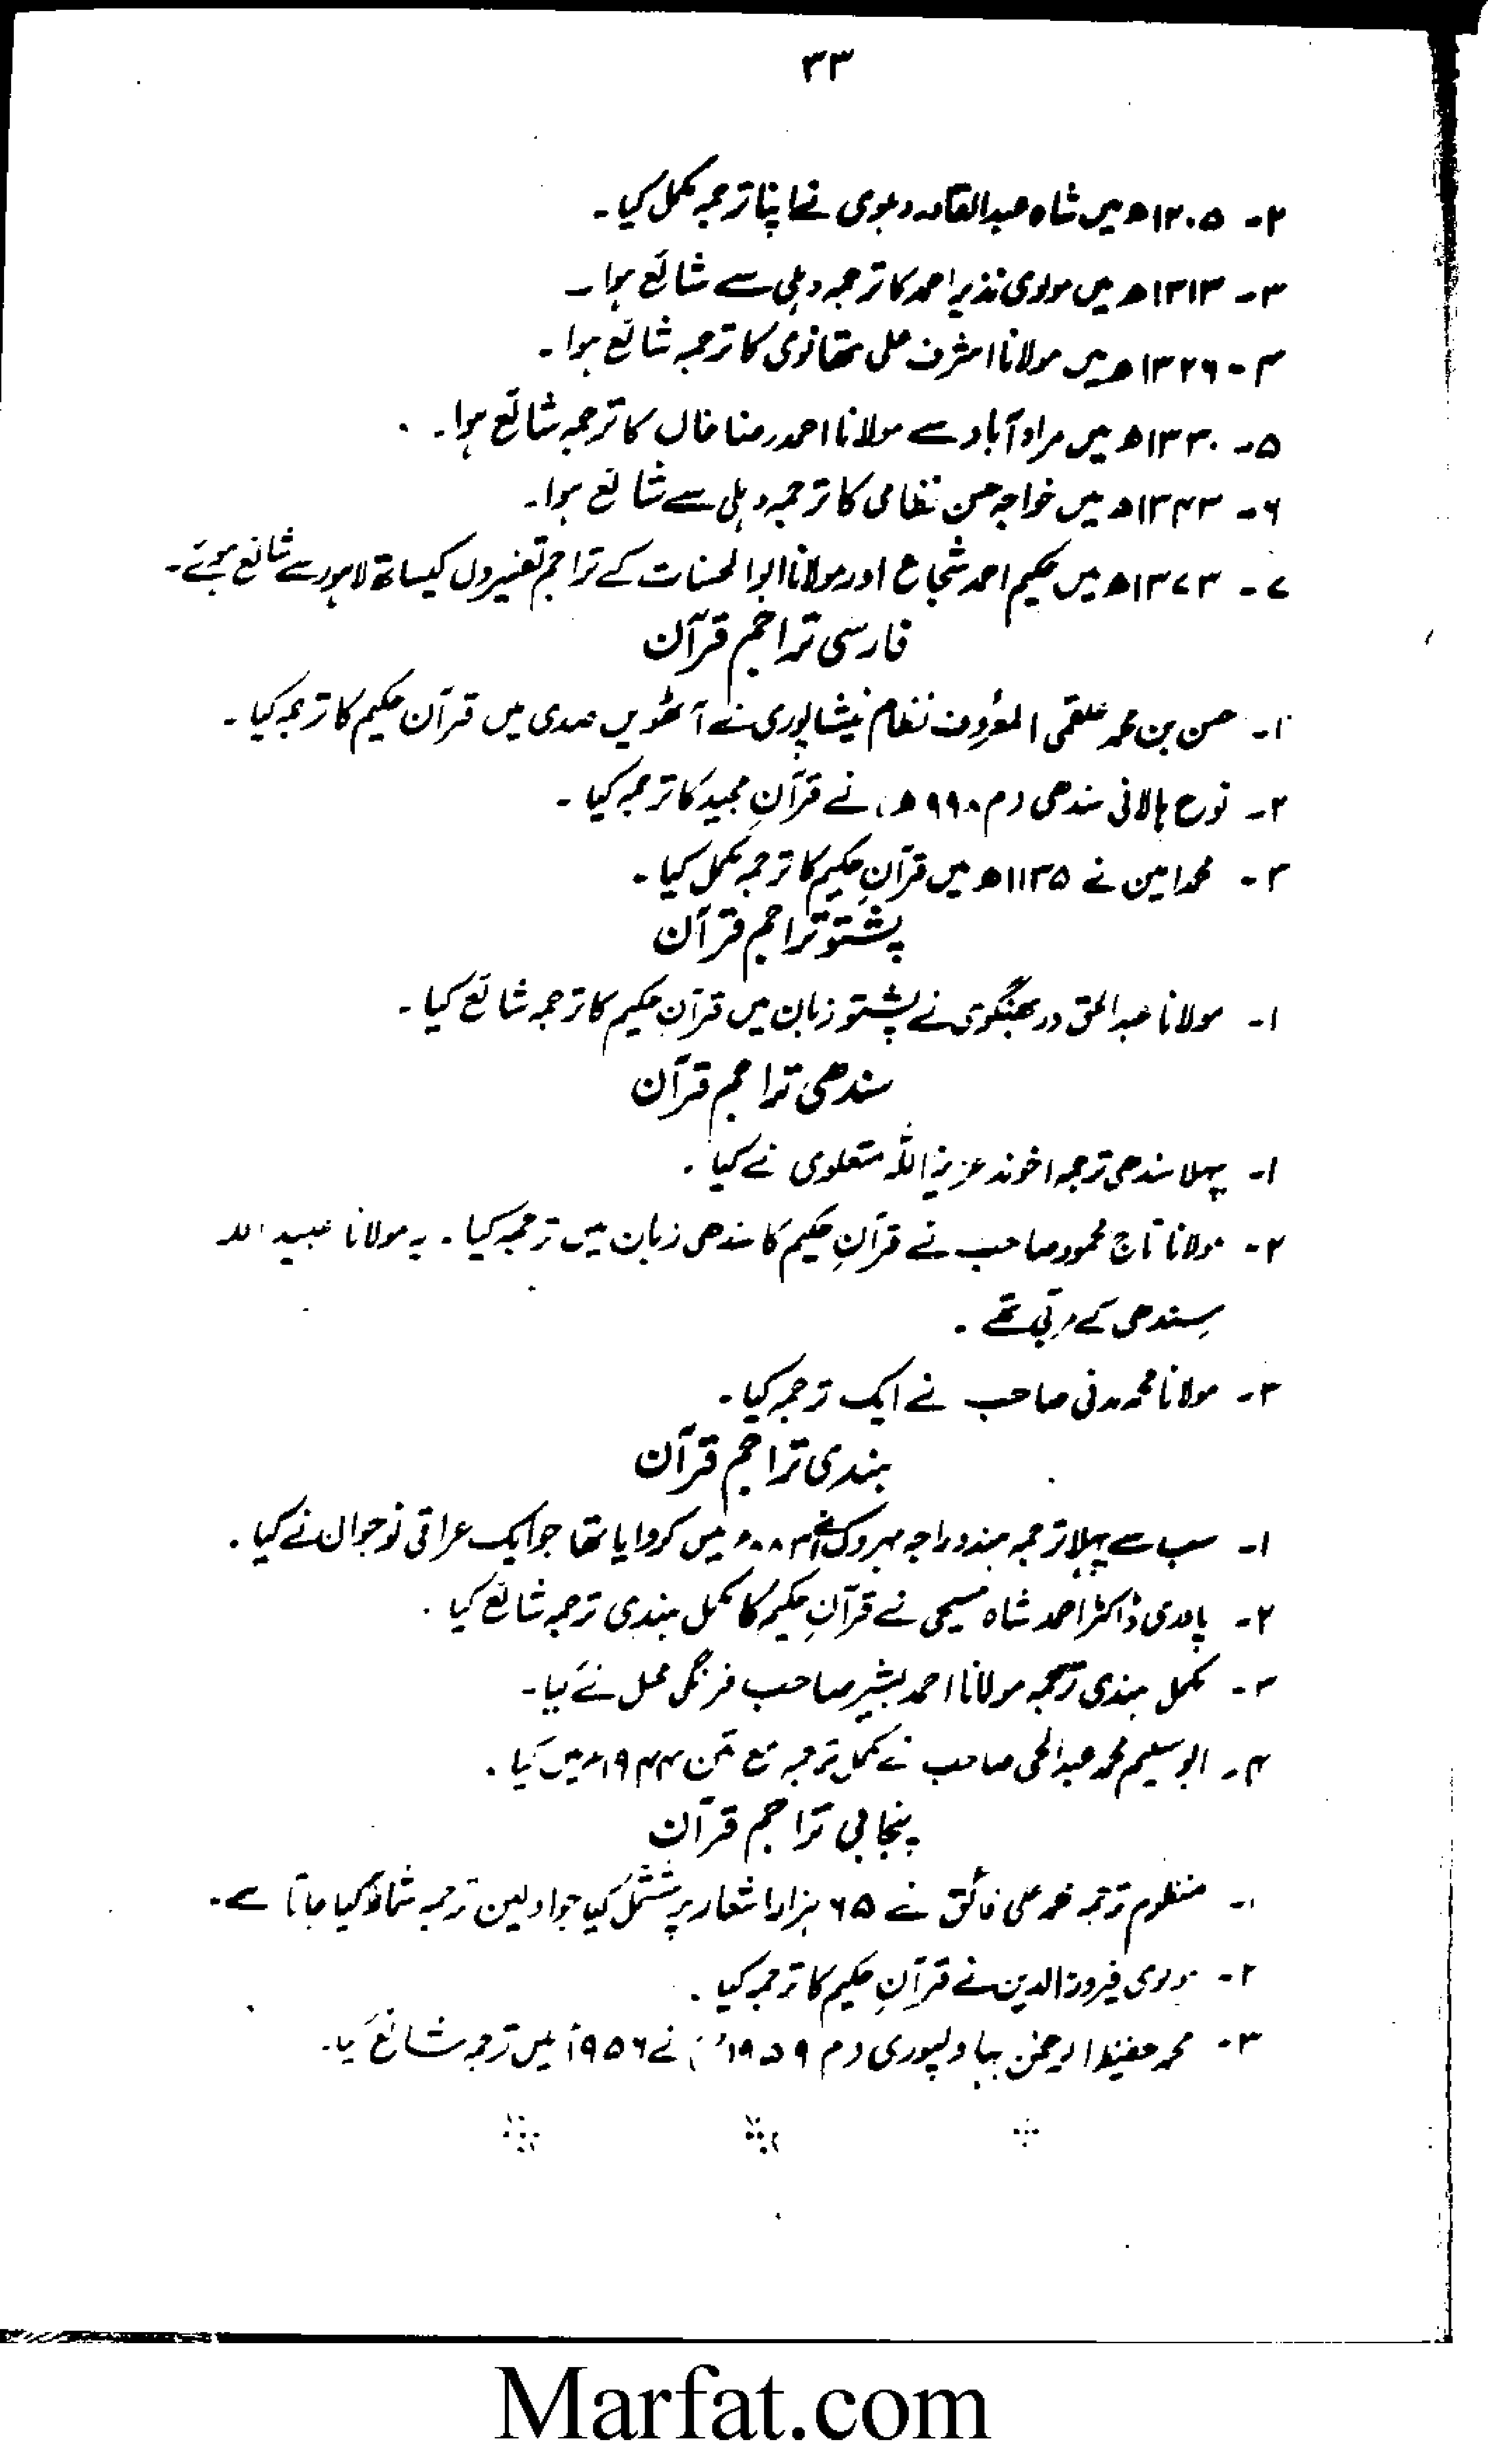 ۳۳
۲- ۱۲۰۵ھ میں شاہ عبدالقادر دہلوی نے اپنا ترجمہ مکمل کیا۔
۳- ۱۳۱۳ھ میں مولوی نذیر احمد کا ترجمہ دہلی سے شائع ہوا۔
۴- ۱۳۲۶ھ میں مولانا اشرف علی تھانوی کا ترجمہ شائع ہوا۔
۵- ۱۳۳۰ھ میں مراد آباد سے مولانا احمد رضا خاں کا ترجمہ شائع ہوا۔
۶- ۱۳۴۳ھ میں خواجہ حسن نظامی کا ترجمہ دہلی سے شائع ہوا۔
۷- ۱۳۷۳ھ میں حکیم احمد شجاع اور مولانا ابوالحسنات کے تراجم تفسیروں کیساتھ لاہور سے شائع ہوئے۔
فارسی تراجم قرآن
۱- حسن بن محمد علقمی المعروف نظام نیشاپوری نے آٹھویں صدی میں قرآن حکیم کا ترجمہ کیا۔
۲- نوح ہالائی سندھی (م ۹۹۸ھ) نے قرآنِ مجید کا ترجمہ کیا۔
۳- محمد امین نے ۱۱۳۵ھ میں قرآنِ حکیم کا ترجمہ مکمل کیا۔
پشتو تراجم قرآن
۱- مولانا عبدالحق دربھنگوی نے پشتو زبان میں قرآنِ حکیم کا ترجمہ شائع کیا۔
سندھی تراجم قرآن
۱- پہلا سندھی ترجمہ اخوند عزیز اللہ متعلوی نے کیا۔
۲- مولانا تاج محمود صاحب نے قرآنِ حکیم کا سندھی زبان میں ترجمہ کیا۔ یہ مولانا عبید اللہ
سِندھی کے مربی تھے۔
۳- مولانا محمد مدنی صاحب نے ایک ترجمہ کیا۔
ہندی تراجم قرآن
۱- سب سے پہلا ترجمہ ہندو راجہ مہروک نے میں کروایا تھا جو ایک عراقی نوجوان نے کیا۔
۲- پادری ڈاکٹر احمد شاہ مسیحی نے قرآنِ حکیم کا مکمل ہندی ترجمہ شائع کیا۔
۳- مکمل ہندی ترجمہ مولانا احمد بشیر صاحب فرنگی محل نے کیا۔
۴- ابو سلیم محمد عبدالحی صاحب نے مکمل ترجمہ مع متن ۱۹۴۴ء میں کیا۔
پنجابی تراجم قرآن
۱- منظوم ترجمہ محمد علی فائق نے ۶۵ ہزار اشعار پر مشتمل کیا جو اولین ترجمہ شمار کیا جاتا ہے۔
۲- مولوی فیروز الدین نے قرآنِ حکیم کا ترجمہ کیا۔
۳- محمد حفیظ الرحمٰن بہاولپوری (م ۱۹۵۹ء) نے ۱۹۵۶ء میں ترجمہ شائع کیا۔
Marfat.com